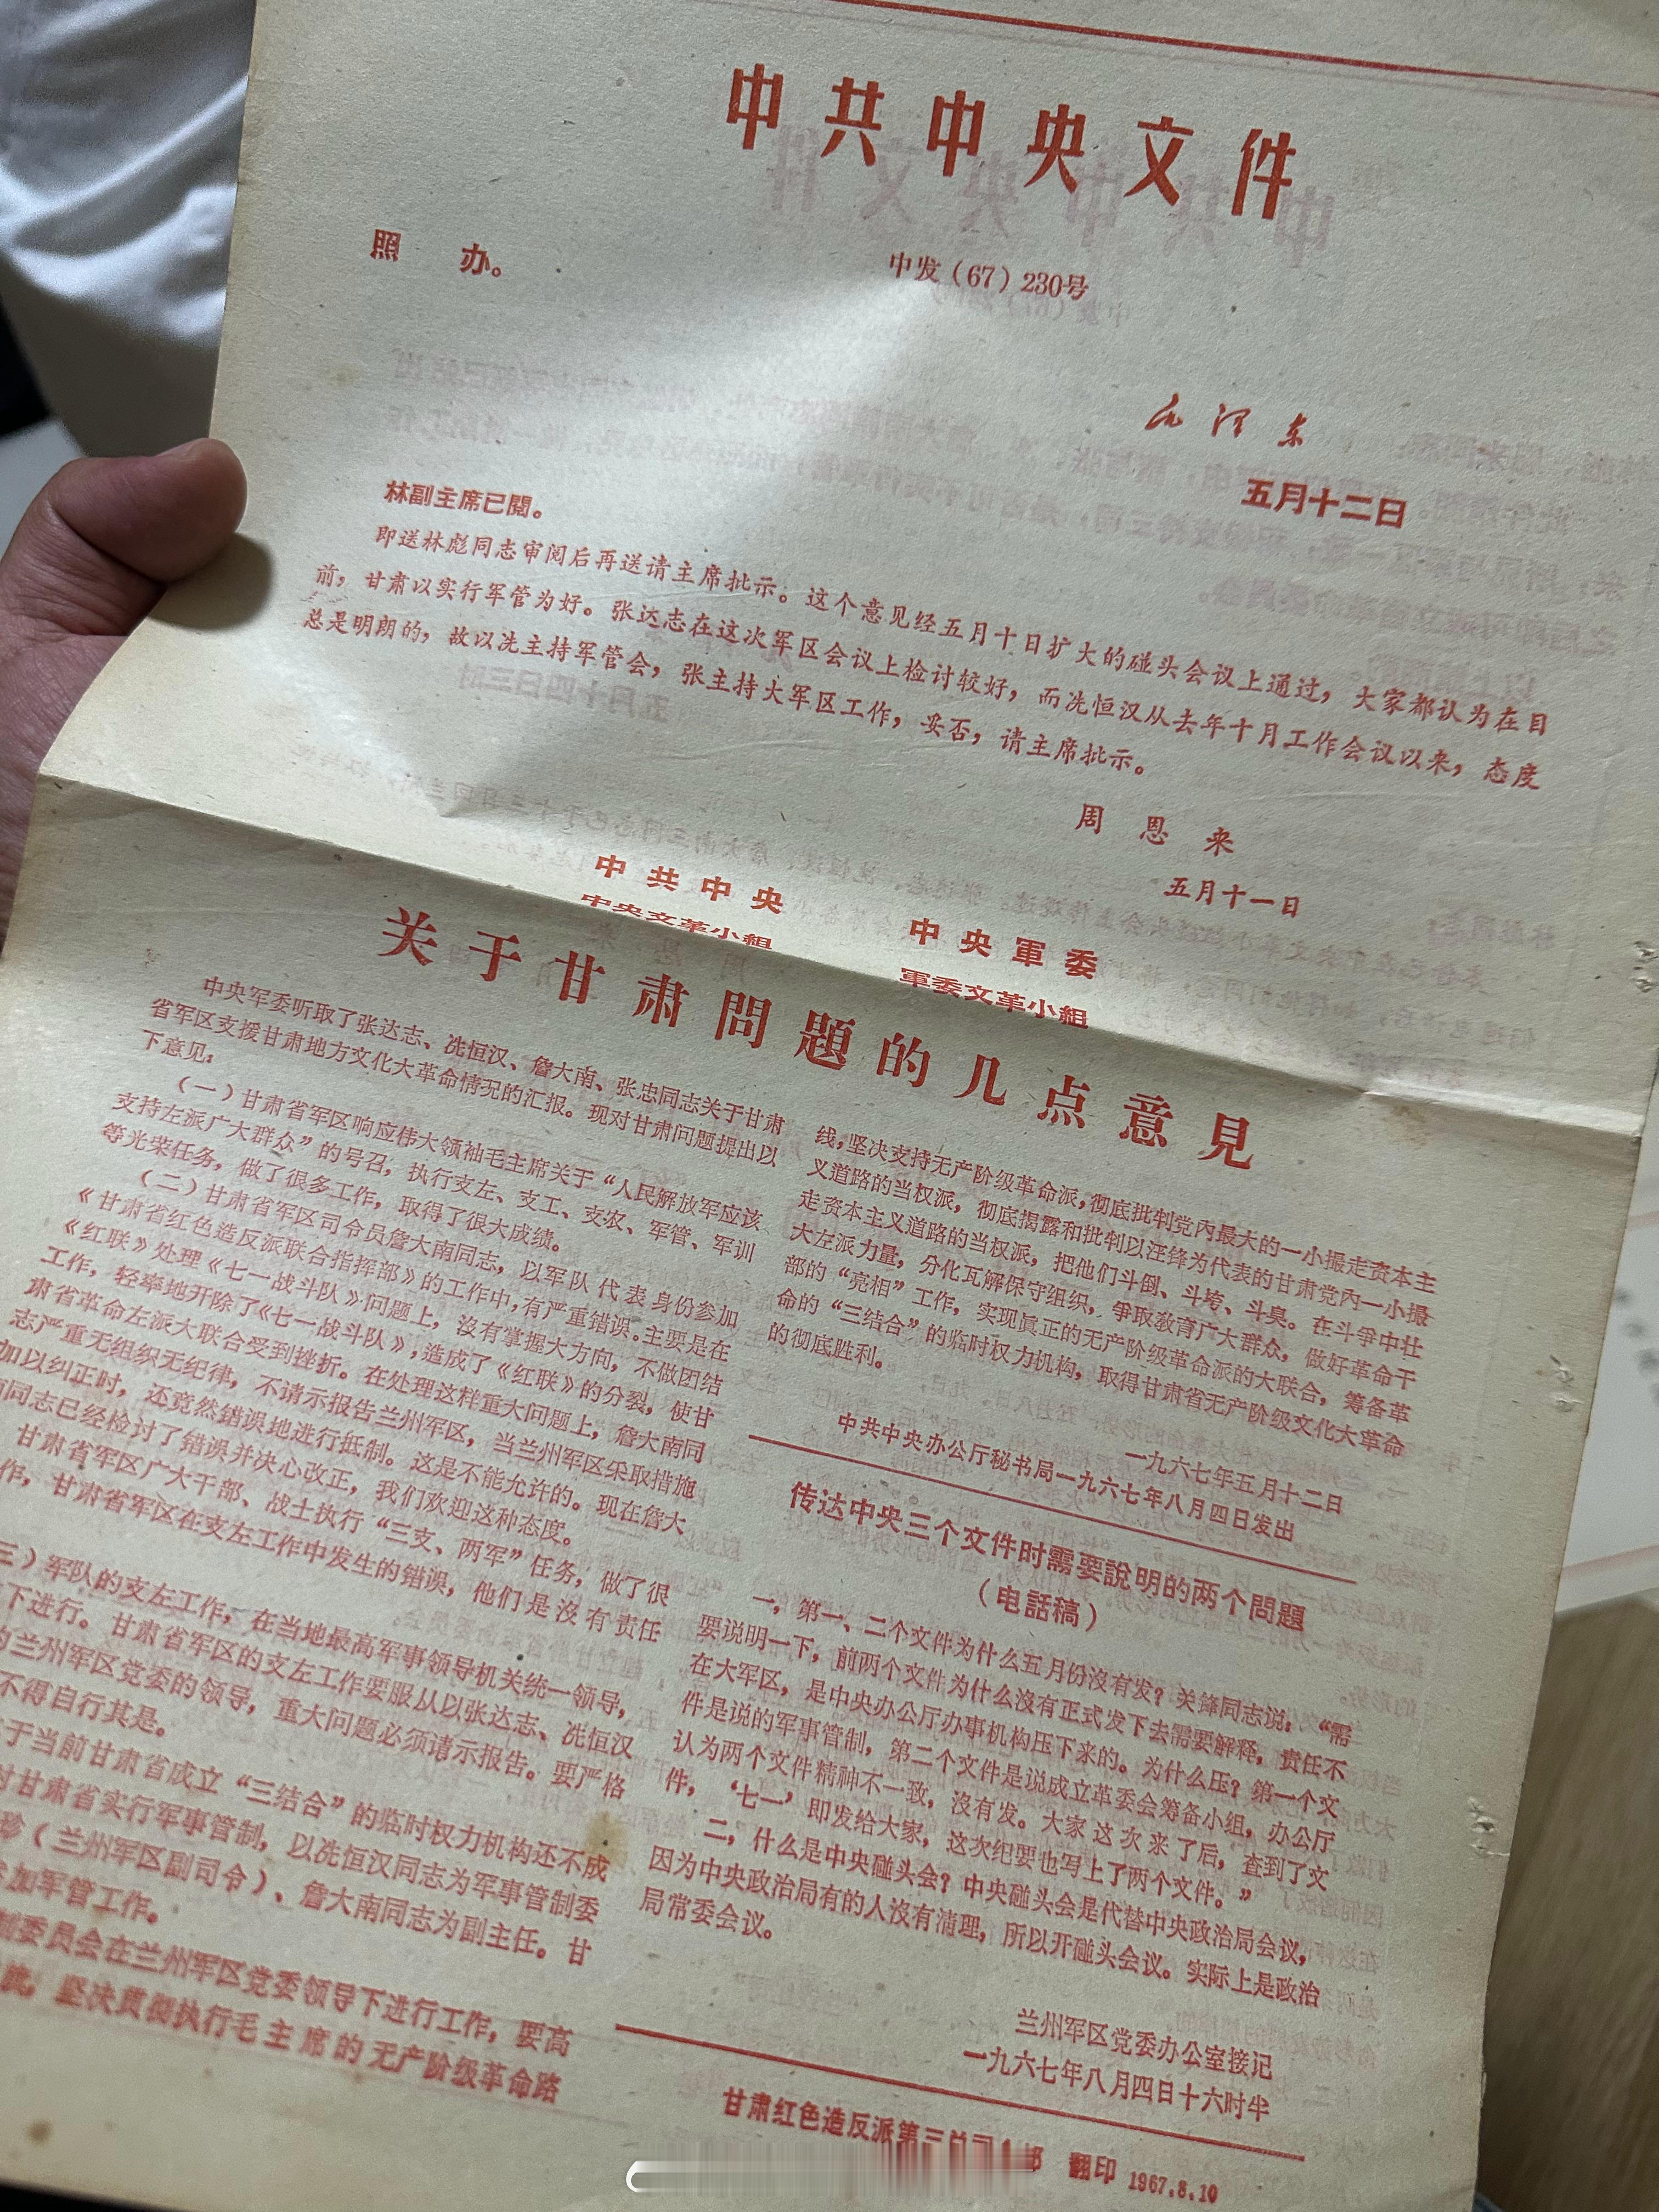 中共中央文件
中发（67）230号
照 办。
毛泽东
五月十二日
林副主席已閱。
即送林彪同志审阅后再送请主席批示。这个意见经五月十日扩大的碰头会议上通过，大家都认为在目
前，甘肃以实行军管为好。张达志在这次军区会议上检讨较好，而冼恒汉从去年十月工作会议以来，态度
总是明朗的，故以冼主持军管会，张主持大军区工作，妥否，请主席批示。
周恩来
五月十一日
中共中央 中央軍委
中央文革小組 軍委文革小組
关于甘肃問題的几点意見
中央军委听取了张达志、冼恒汉、詹大南、张忠同志关于甘肃
省军区支援甘肃地方文化大革命情况的汇报。现对甘肃问题提出以
下意见：
（一）甘肃省军区响应伟大领袖毛主席关于“人民解放军应该
支持左派广大群众”的号召，执行支左、支工、支农、军管、军训
等光荣任务，做了很多工作，取得了很大成绩。
（二）甘肃省军区司令员詹大南同志，以军队代表身份参加
《甘肃省红色造反派联合指挥部》的工作中，有严重错误。主要是在
《红联》处理《七一战斗队》问题上，沒有掌握大方向，不做团结
工作，轻率地开除了《七一战斗队》，造成了《红联》的分裂，使甘
肃省革命左派大联合受到挫折。在处理这样重大问题上，詹大南同
志严重无组织无纪律，不请示报告兰州军区，当兰州军区采取措施
加以纠正时，还竟然错误地进行抵制。这是不能允许的。现在詹大
同志已经检讨了错误并决心改正，我们欢迎这种态度。
甘肃省军区广大干部、战士执行“三支、两军”任务，做了很
作，甘肃省军区在支左工作中发生的错误，他们是沒有责任
三）军队的支左工作，在当地最高军事领导机关统一领导，
下进行。甘肃省军区的支左工作要服从以张达志、冼恒汉
的兰州军区党委的领导，重大问题必须请示报告。要严格
不得自行其是。
于当前甘肃省成立“三结合”的临时权力机构还不成
对甘肃省实行军事管制，以冼恒汉同志为军事管制委
珍（兰州军区副司令）、詹大南同志为副主任。甘
参加军管工作。
制委员会在兰州军区党委领导下进行工作，要高
坚决贯彻执行毛主席的无产阶级革命路
线，坚决支持无产阶级革命派，彻底批判党內最大的一小撮走资本主
义道路的当权派，彻底揭露和批判以汪锋为代表的甘肃党內一小撮
走资本主义道路的当权派，把他们斗倒、斗垮、斗臭。在斗爭中壮
大左派力量，分化瓦解保守组织，爭取敎育广大群众，做好革命干
部的“亮相”工作，实现眞正的无产阶级革命派的大联合，筹备革
命的“三结合”的临时权力机构，取得甘肃省无产阶级文化大革命
的彻底胜利。
一九六七年五月十二日
中共中央办公厅秘书局一九六七年八月四日发出
传达中央三个文件时需要說明的两个問題
（电話稿）
一，第一、二个文件为什么五月份沒有发？关锋同志说：“需
要说明一下，前两个文件为什么沒有正式发下去需要解释，责任不
在大军区，是中央办公厅办事机构压下来的。为什么压？第一个文
件是说的军事管制，第二个文件是说成立革委会筹备小组，办公厅
认为两个文件精神不一致，沒有发。大家这次来了后，查到了文
件，‘七一’即发给大家，这次纪要也写上了两个文件。”
二，什么是中央碰头会？中央碰头会是代替中央政治局会议，
因为中央政治局有的人沒有清理，所以开碰头会议。实际上是政治
局常委会议。
兰州军区党委办公室接记
一九六七年八月四日十六时半
甘肃红色造反派第三总司令部 翻印 1967.8.10